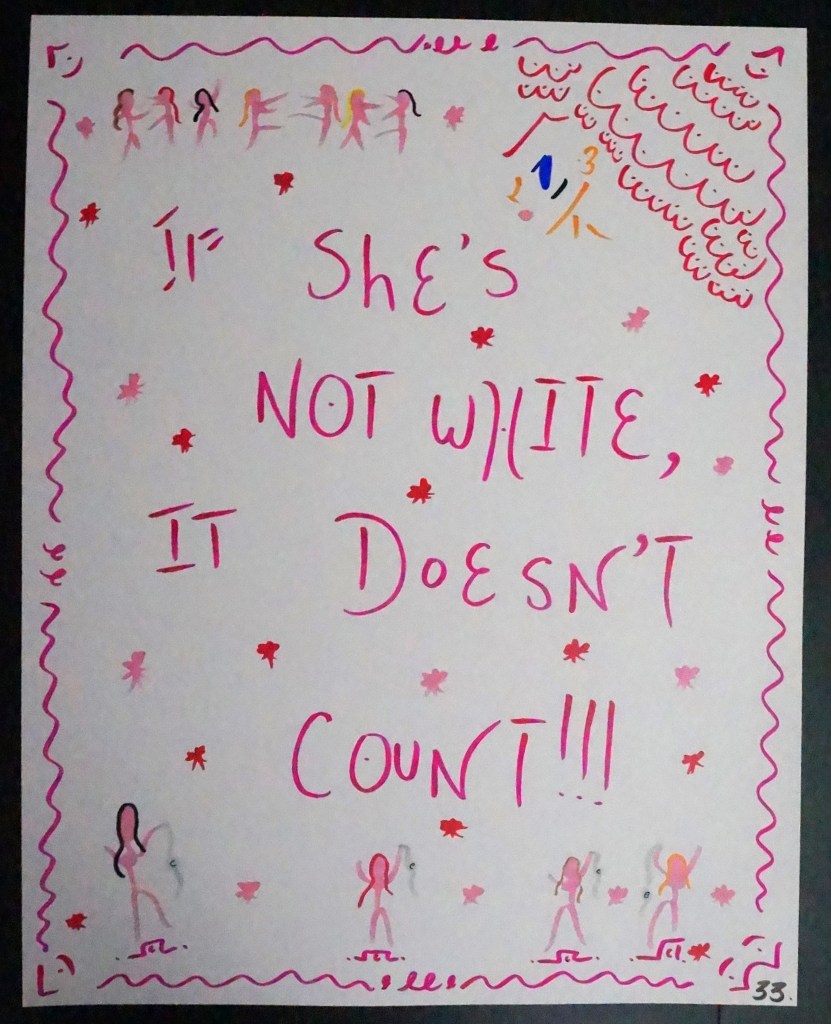 1 3
2
IF SHE'S
NOT WHITE,
IT DOESN'T
COUNT!!!
33.